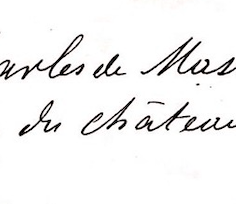 arles de Mas
du château